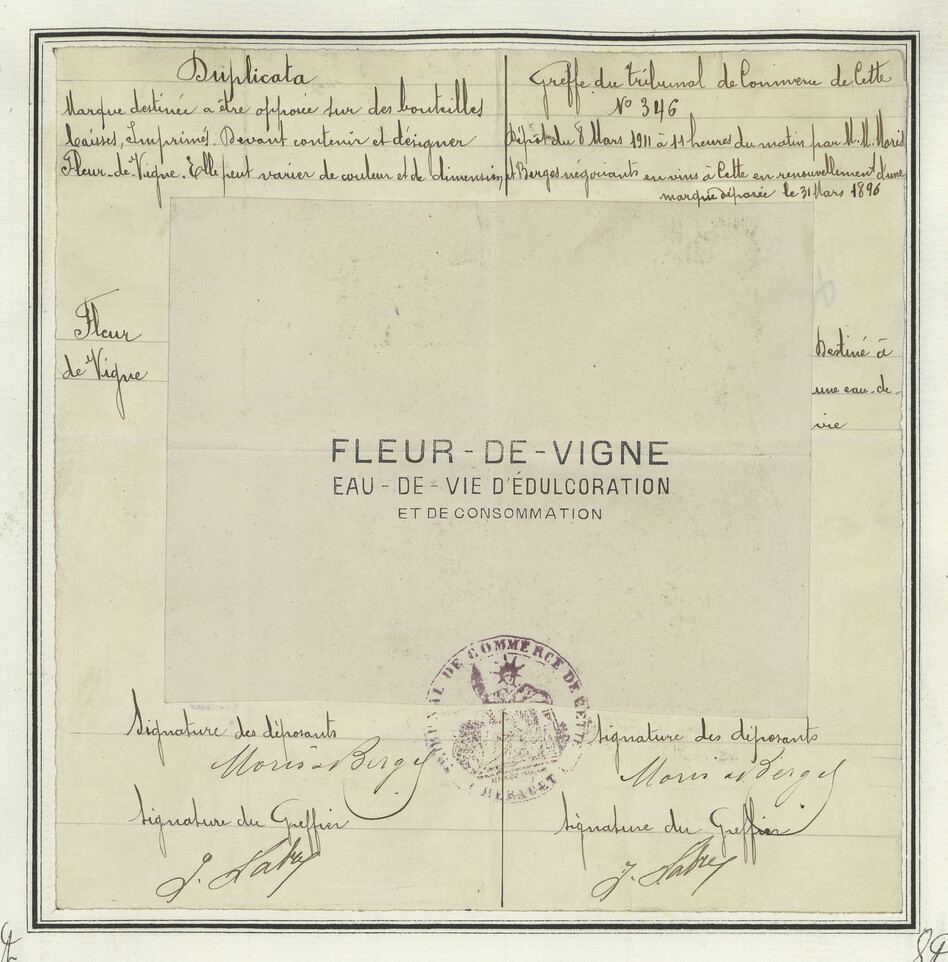 Duplicata
Marque destinée a être opposée sur des bouteilles
Caisses, Imprimés. Devant contenir et désigner
Fleur-de-Vigne. Elle peut varier de couleur et de dimension
Greffe du tribunal de Commerce de Cette
N° 346
Dépôt du 8 Mars 1911 à 11 heures du matin par M.M. Moris
et Berges négociants en vins à Cette en renouvellement d'une
marque déposée le 31 Mars 1896
Fleur
de Vigne
Destiné à
une eau-de-
vie
FLEUR-DE-VIGNE
EAU-DE-VIE D'ÉDULCORATION
ET DE CONSOMMATION
TRIBUNAL DE COMMERCE DE CETTE
HERAULT
Signature des déposants
Moris & Berges
Signature du Greffier
Signature des déposants
Moris & Berges
Signature du Greffier